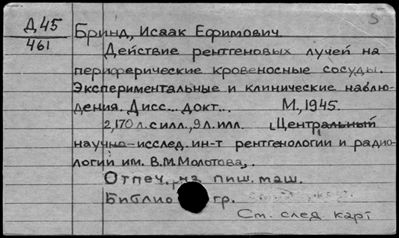 Д 45
461
Бринд, Исаак Ефимович.
Действие рентгеновых лучей на
периферические кровеносные сосуды.
Экспериментальные и клинические наблю-
дения. Дисс... докт... М., 1945.
2, 170 л. с илл., 9 л. илл. (Центральный
научно-исслед. ин-т рентгенологии и радио-
логии им. В.М. Молотова).
Отпеч. на пиш. маш.
Библиогр.
См. след. карт